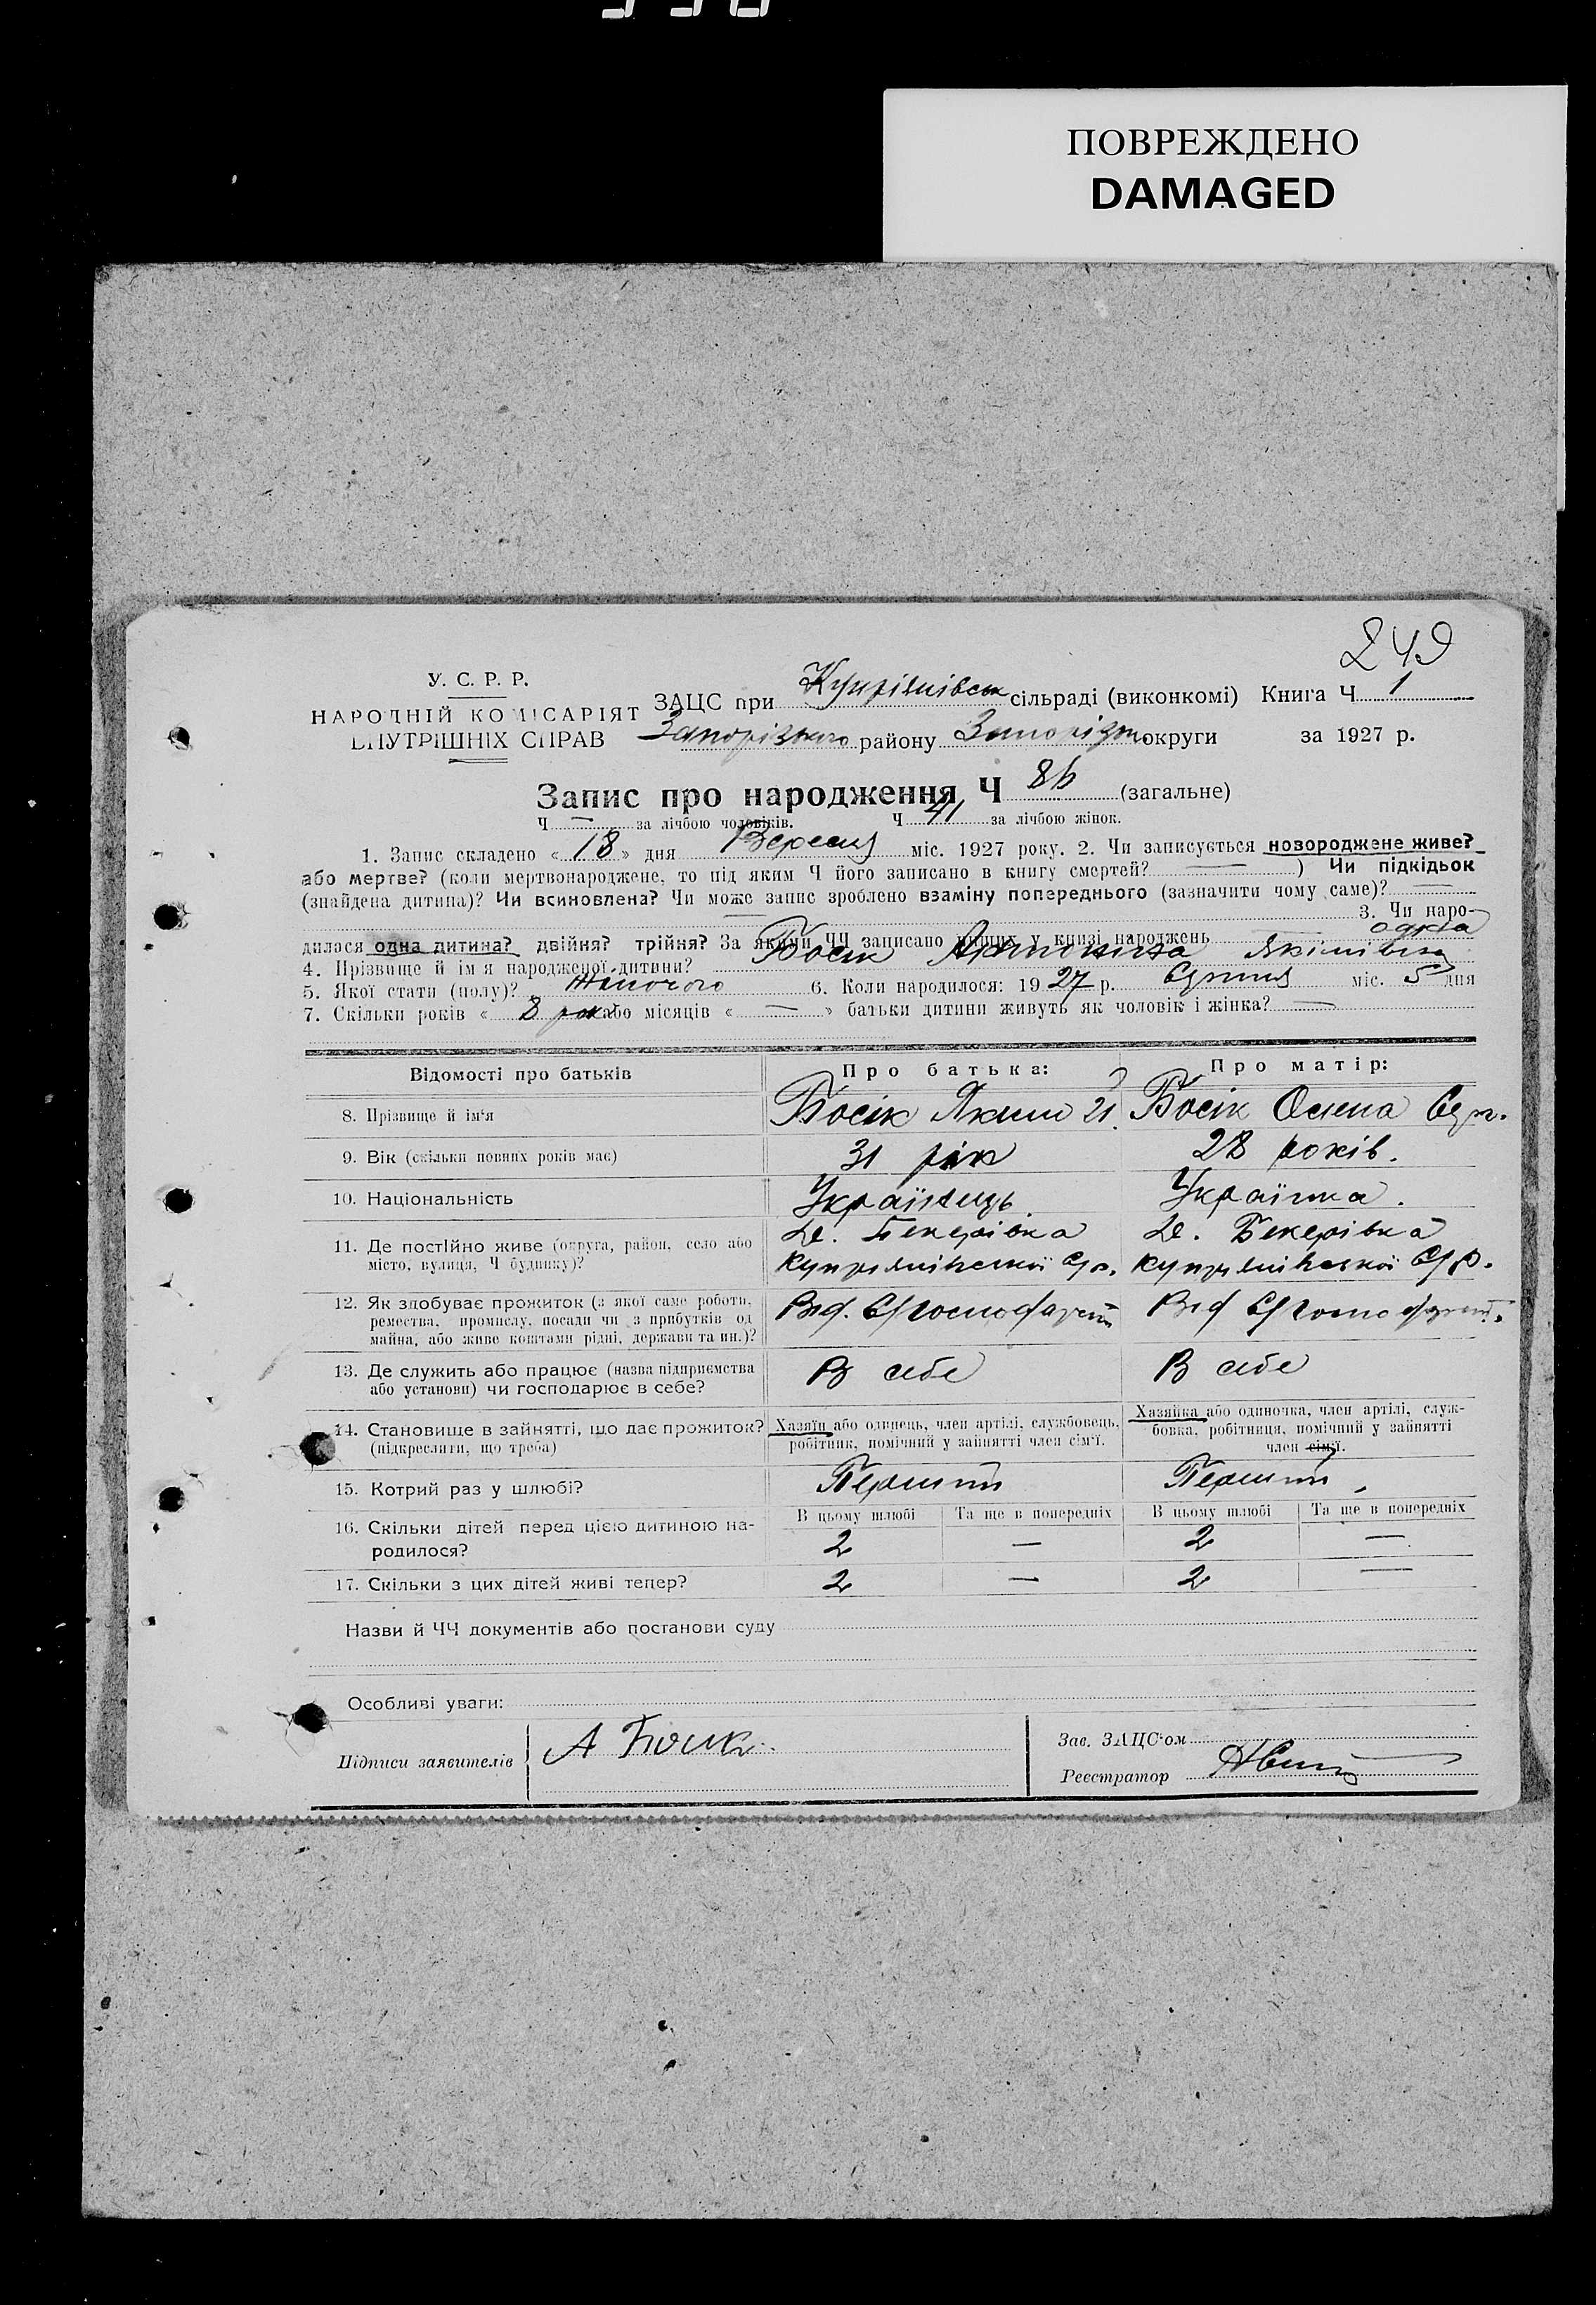 ПОВРЕЖДЕНО
DAMAGED
249
У. С. Р. Р.
НАРОДНІЙ КОМІСАРІЯТ
ВНУТРІШНІХ СПРАВ
ЗАЦС при Купріянівськ сільраді (виконкомі) Книга Ч 1
Запорізького району Запорізьк округи за 1927 р.
Запис про народження Ч 86 (загальне)
Ч — за лічбою чоловіків. Ч 41 за лічбою жінок.
1. Запис складено « 18 » дня Вересня міс. 1927 року. 2. Чи записується новороджене живе?
або мертве? (коли мертвонароджене, то під яким Ч його записано в книгу смертей? — ) Чи підкідьок
(знайдена дитина)? Чи всиновлена? Чи може запис зроблено взаміну попереднього (зазначити чому саме)? —
— 3. Чи наро-
дилася одна дитина? двійня? трійня? За якими ЧЧ записано инших у книзі народжень — одна
4. Прізвище й ім'я народженої дитини? Босік Антоніна Якімівна
5. Якої стати (полу)? Жіночого 6. Коли народилося: 1927 р. Серпня міс. 5 дня
7. Скільки років « 8 рок або місяців « — » батьки дитини живуть як чоловік і жінка? —
Відомості про батьків
Про батька:
Про матір:
8. Прізвище й ім'я
Босік Яким
Босік Олена
9. Вік (скільки повних років має)
31 рік
28 років.
10. Національність
Українець.
Українка.
11. Де постійно живе (округа, район, село або
місто, вулиця, Ч будинку)?
Бекерівка
Купріянівської С/р.
Бекерівка
Купріянівської С/р.
12. Як здобуває прожиток (з якої саме роботи,
ремества, промислу, посади чи з прибутків од
майна, або живе коштами рідні, держави та ин.)?
Від С/господарст
Від С/господарст.
13. Де служить або працює (назва підприємства
або установи) чи господарює в себе?
В себе
В себе
14. Становище в зайнятті, що дає прожиток?
(підкреслити, що треба)
Хазяїн або одинець, член артілі, службовець,
робітник, помічний у зайнятті член сім'ї.
Хазяйка або одиночка, член артілі, служ-
бовка, робітниця, помічний у зайнятті
член сім'ї.
15. Котрий раз у шлюбі?
Перший
Перший
16. Скільки дітей перед цією дитиною на-
родилося?
В цьому шлюбі
Та ще в попередніх
В цьому шлюбі
Та ще в попередніх
2 — 2 —
17. Скільки з цих дітей живі тепер?
2 — 2 —
Назви й ЧЧ документів або постанови суду
Особливі уваги:
Підписи заявителів
А Босік
Зав. ЗАЦС'ом
Реєстратор